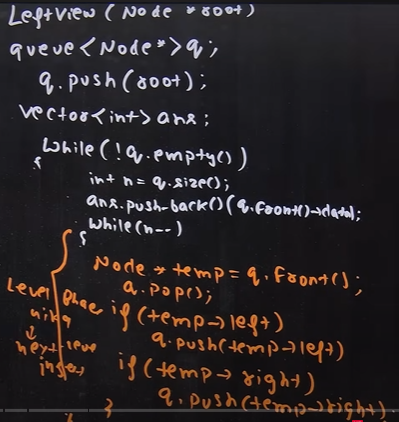 LeftView (Node *root)
queue<Node*>q;
q.push(root);
vector<int>ans;
while(!q.empty())
{
int n= q.size();
ans.push-back()(q.front()->data);
while(n--)
{
Node * temp = q.front();
q.pop();
if(temp->left)
q.push(temp->left)
if(temp-> right)
q.push(temp->right).
}
Level
next leve